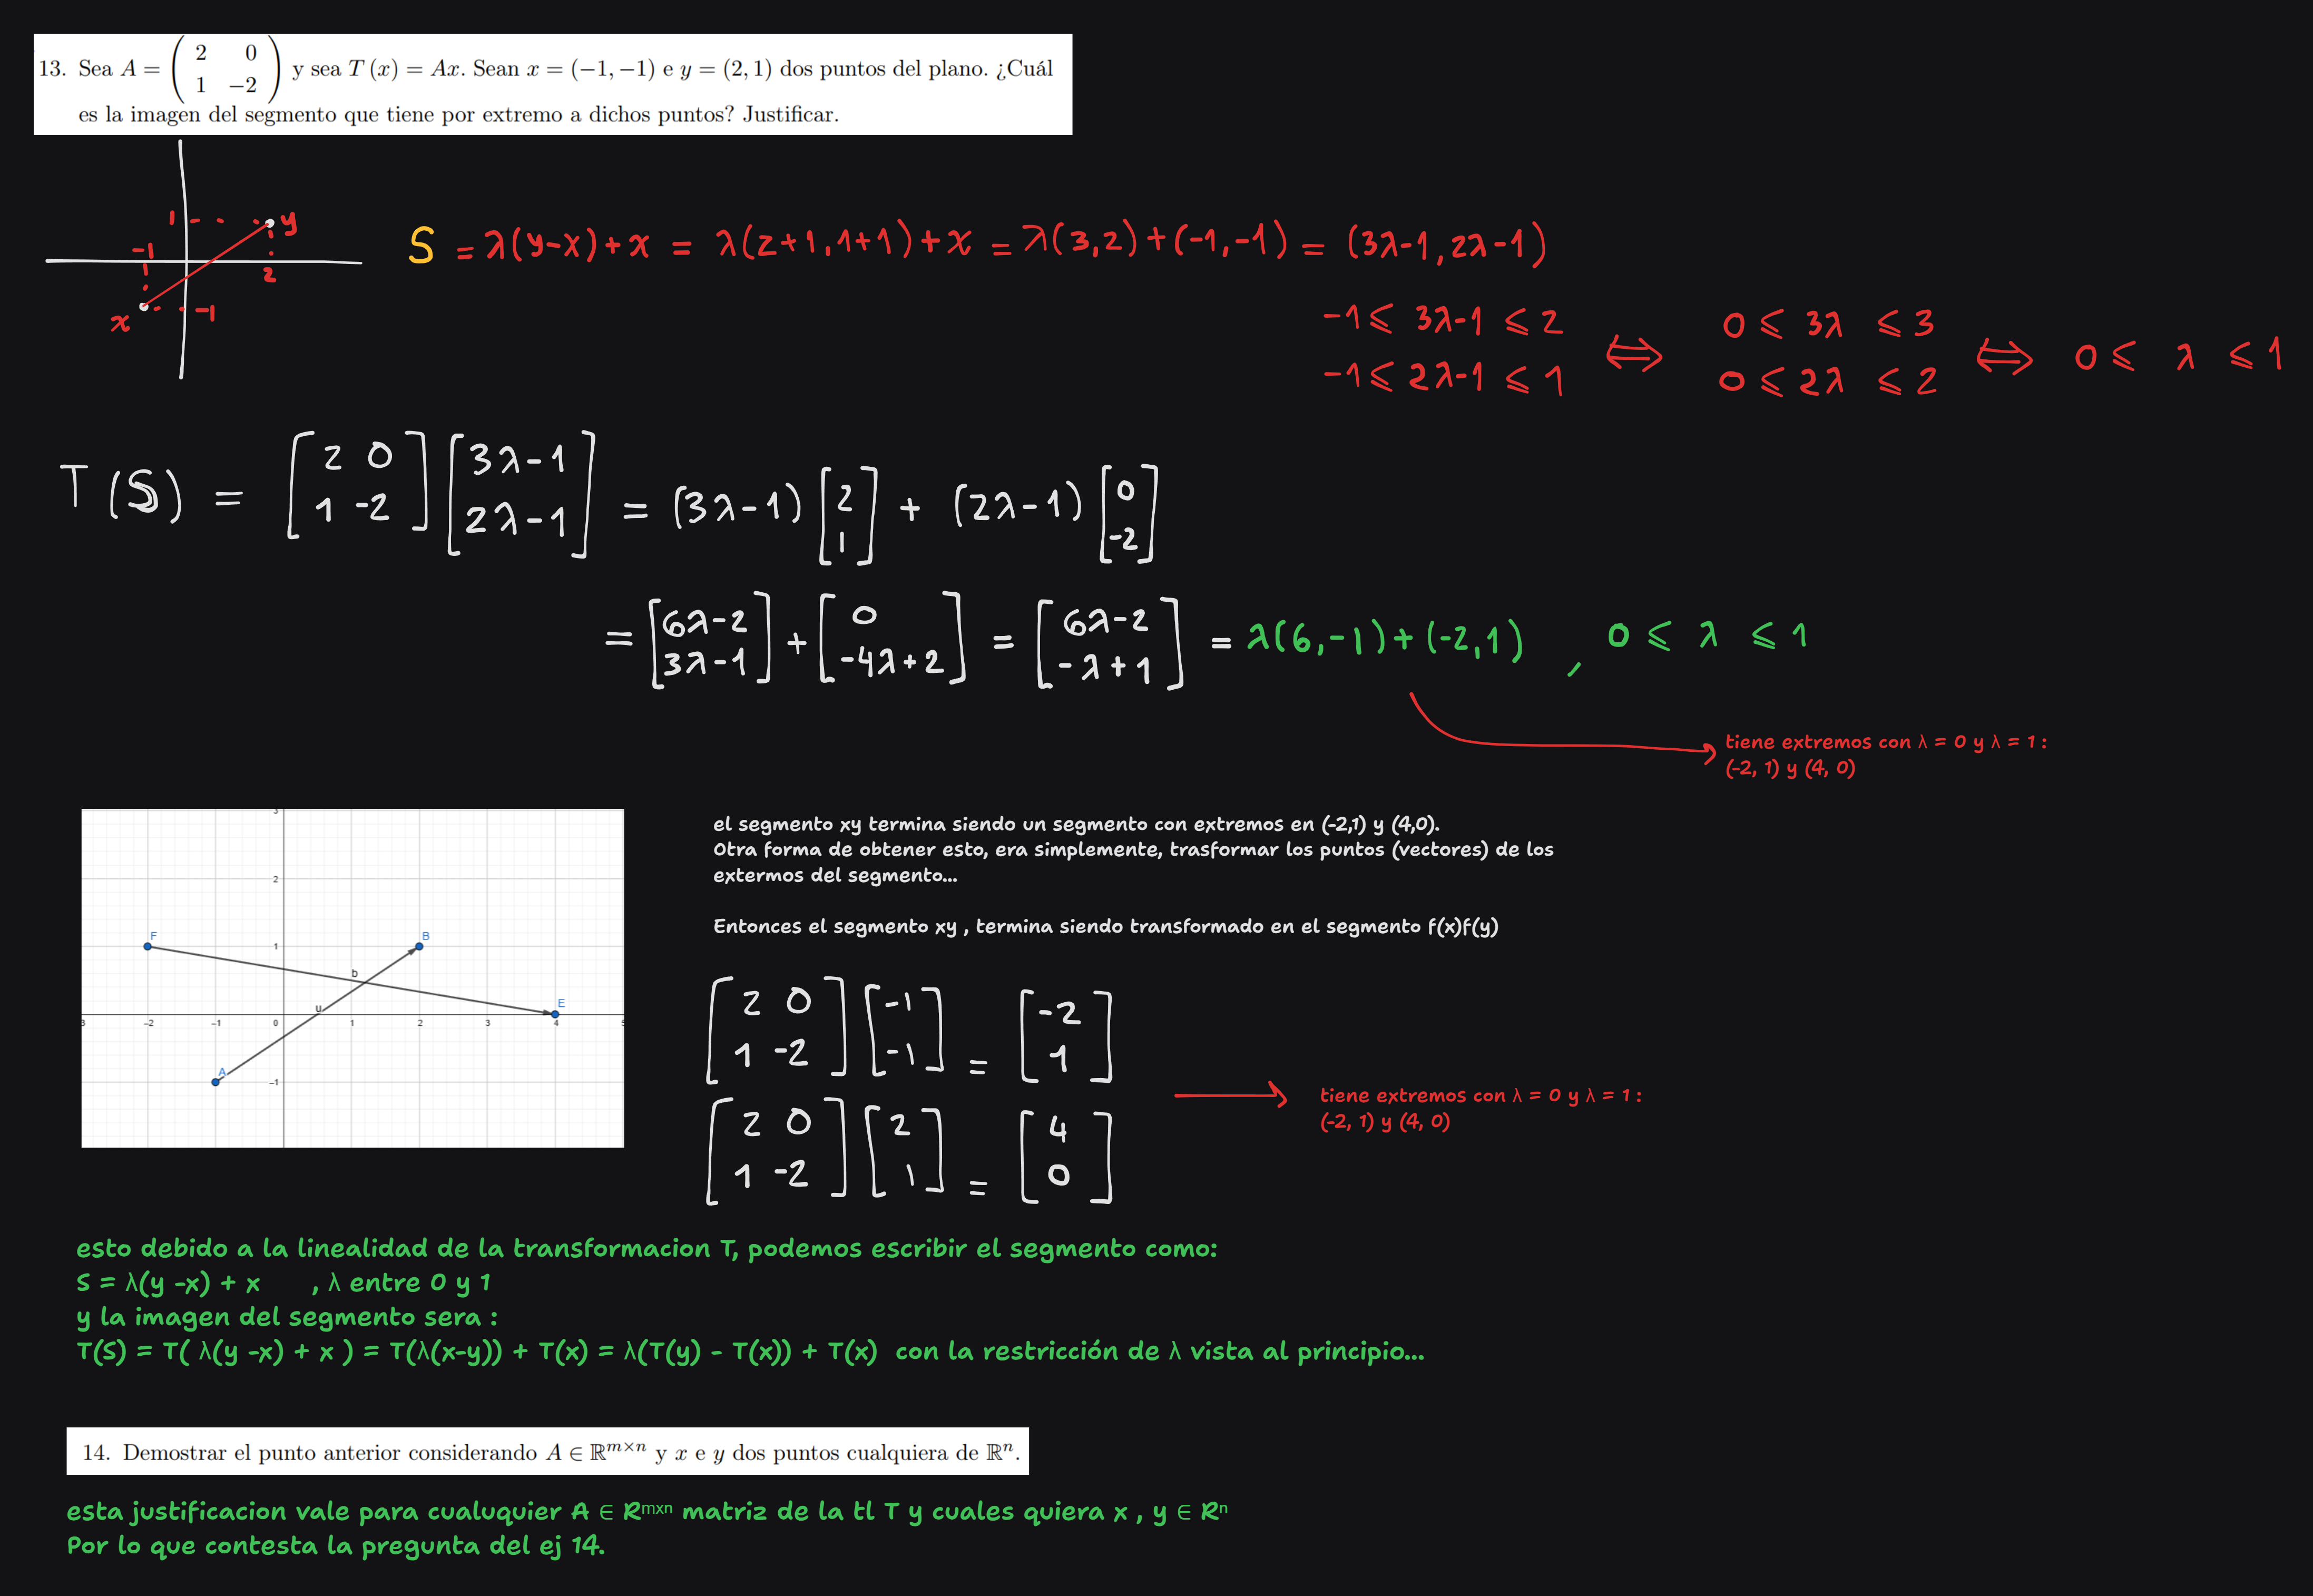 13. Sea A = ( 2 0 ; 1 −2 ) y sea T (x) = Ax. Sean x = (−1, −1) e y = (2, 1) dos puntos del plano. ¿Cuál
es la imagen del segmento que tiene por extremo a dichos puntos? Justificar.
1 y
-1
2
x -1
S = λ(y-x)+x = λ(2+1,1+1)+x = λ(3,2)+(-1,-1) = (3λ-1,2λ-1)
-1 ⩽ 3λ-1 ⩽ 2 ⟺ 0 ⩽ 3λ ⩽ 3 ⟺ 0 ⩽ λ ⩽ 1
-1 ⩽ 2λ-1 ⩽ 1 0 ⩽ 2λ ⩽ 2
T(S) = [2 0; 1 -2] [3λ-1; 2λ-1] = (3λ-1) [2; 1] + (2λ-1) [0; -2]
= [6λ-2; 3λ-1] + [0; -4λ+2] = [6λ-2; -λ+1] = λ(6,-1)+(-2,1) , 0 ⩽ λ ⩽ 1
tiene extremos con λ = 0 y λ = 1 :
(-2, 1) y (4, 0)
3
2
F 1 B
b
u E
3 −2 −1 0 1 2 3 4 5
A −1
el segmento xy termina siendo un segmento con extremos en (-2,1) y (4,0).
Otra forma de obtener esto, era simplemente, trasformar los puntos (vectores) de los
extermos del segmento...
Entonces el segmento xy , termina siendo transformado en el segmento f(x)f(y)
[2 0; 1 -2] [-1; -1] = [-2; 1]
[2 0; 1 -2] [2; 1] = [4; 0]
tiene extremos con λ = 0 y λ = 1 :
(-2, 1) y (4, 0)
esto debido a la linealidad de la transformacion T, podemos escribir el segmento como:
S = λ(y -x) + x , λ entre 0 y 1
y la imagen del segmento sera :
T(S) = T( λ(y -x) + x ) = T(λ(x-y)) + T(x) = λ(T(y) - T(x)) + T(x) con la restricción de λ vista al principio...
14. Demostrar el punto anterior considerando A ∈ ℝᵐˣⁿ y x e y dos puntos cualquiera de ℝⁿ.
esta justificacion vale para cualuquier A ∈ Rᵐˣⁿ matriz de la tl T y cuales quiera x , y ∈ Rⁿ
Por lo que contesta la pregunta del ej 14.